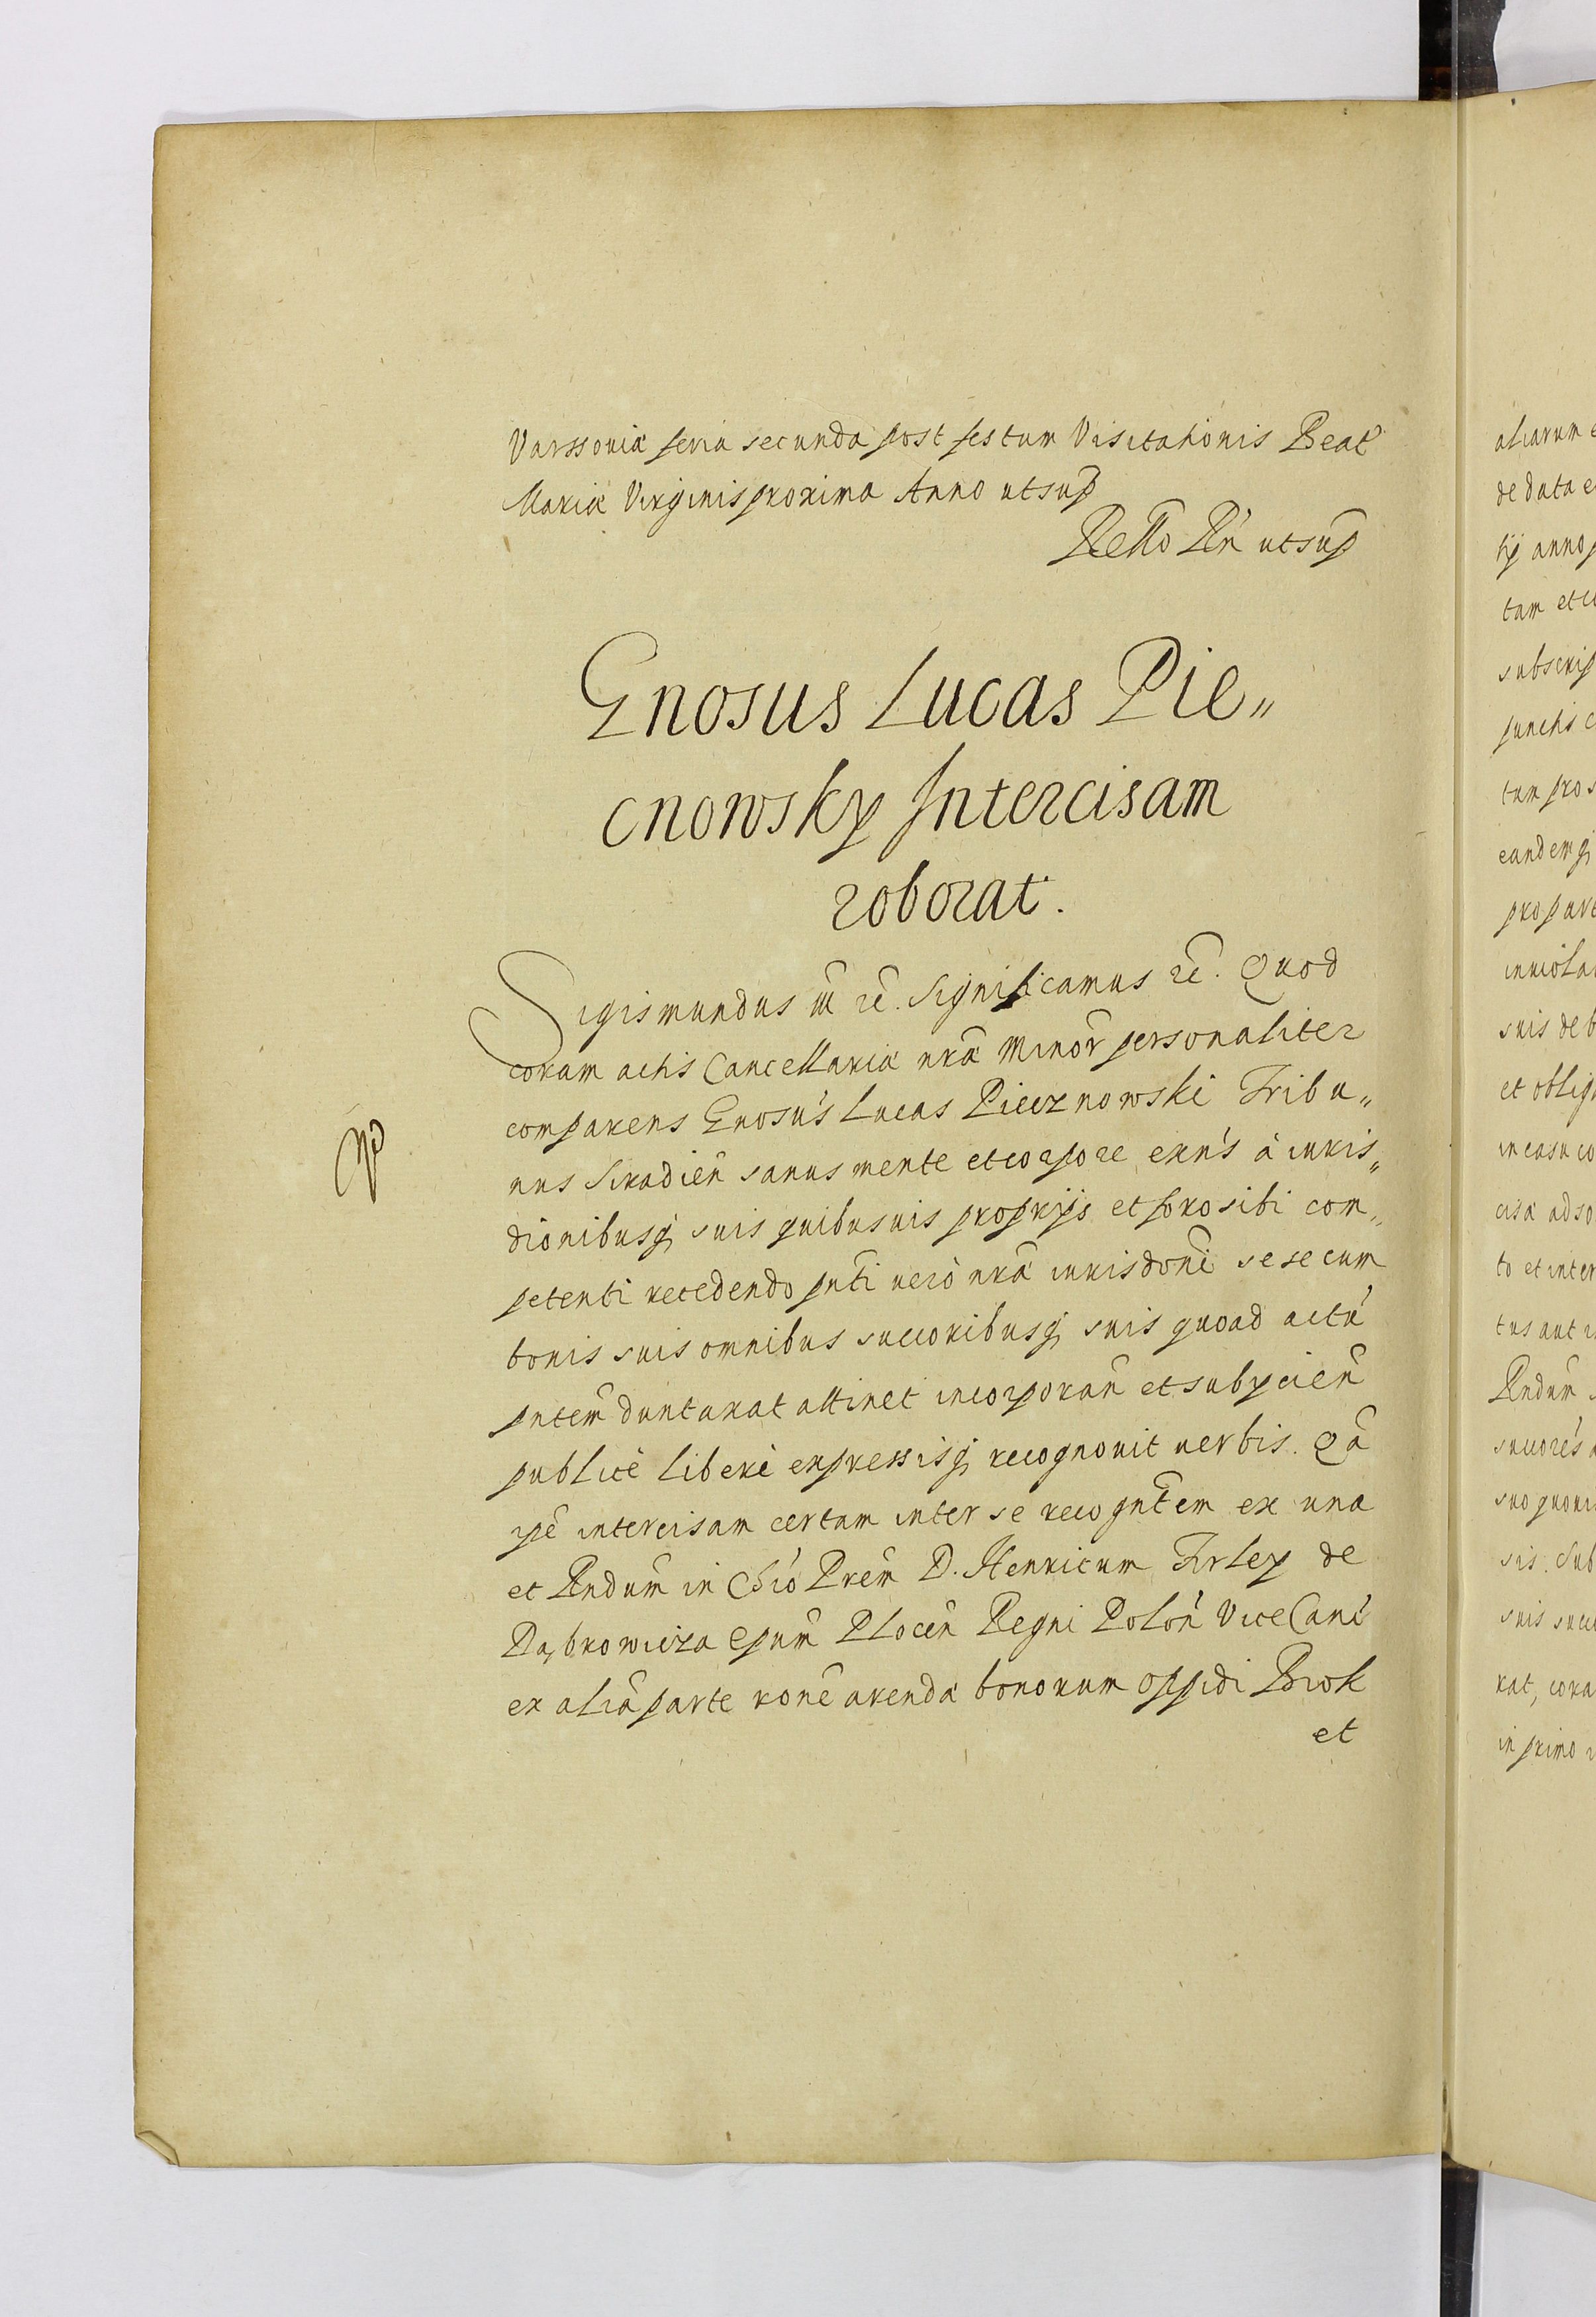 Varssoviæ feria secunda post festum Visitationis Beat̃
Mariæ Virginis proxima Anno ut sup̃
Rel̃lo Rñ ut sup̃
Gnosus Lucas Pie„
cnowsky Intercisam
roborat.
Sigismundus iiĩ rẽ. Significamus rẽ. Quod
coram actis Cancellariæ nr̃æ Minor̃ personaliter
comparens Gnosús Lucas Piecznowski Tribu„
nus Siradieñ sanus mente et corpore exńs à iuris„
dionibusq́ suis quibusuis proprijs et foro sibi com„
petenti recedendo pñti uerò nr̃æ iurisdoñi sese cum
bonis suis omnibus succoribusq́ suis quoad actú
pñtem duntaxat attinet incorporañ et subycieñ
publicè liberè expressisq́ recognouit uerbis. Qã
ipẽ intercisam certam inter se recogñtem ex una
et Rñdum̃ in Chió Prẽm D. Henricum Firley de
Dąbrowicza Epum̃ Plocẽn Regni Polóñ ViceCanć
ex aliã parte roñe arendæ bonorum oppidi Brok
et
aliarum
de data
tij anno
tam et
subscrip
punctis
tum pro
eandemq́
pro part
inuiola
suis deb
et oblig
in casu co
cisæ ad so
to et inter
tus aut
Rñdum̃
succorés
suo quoui
sis. Sub
suis succ
rat, cora
in primo